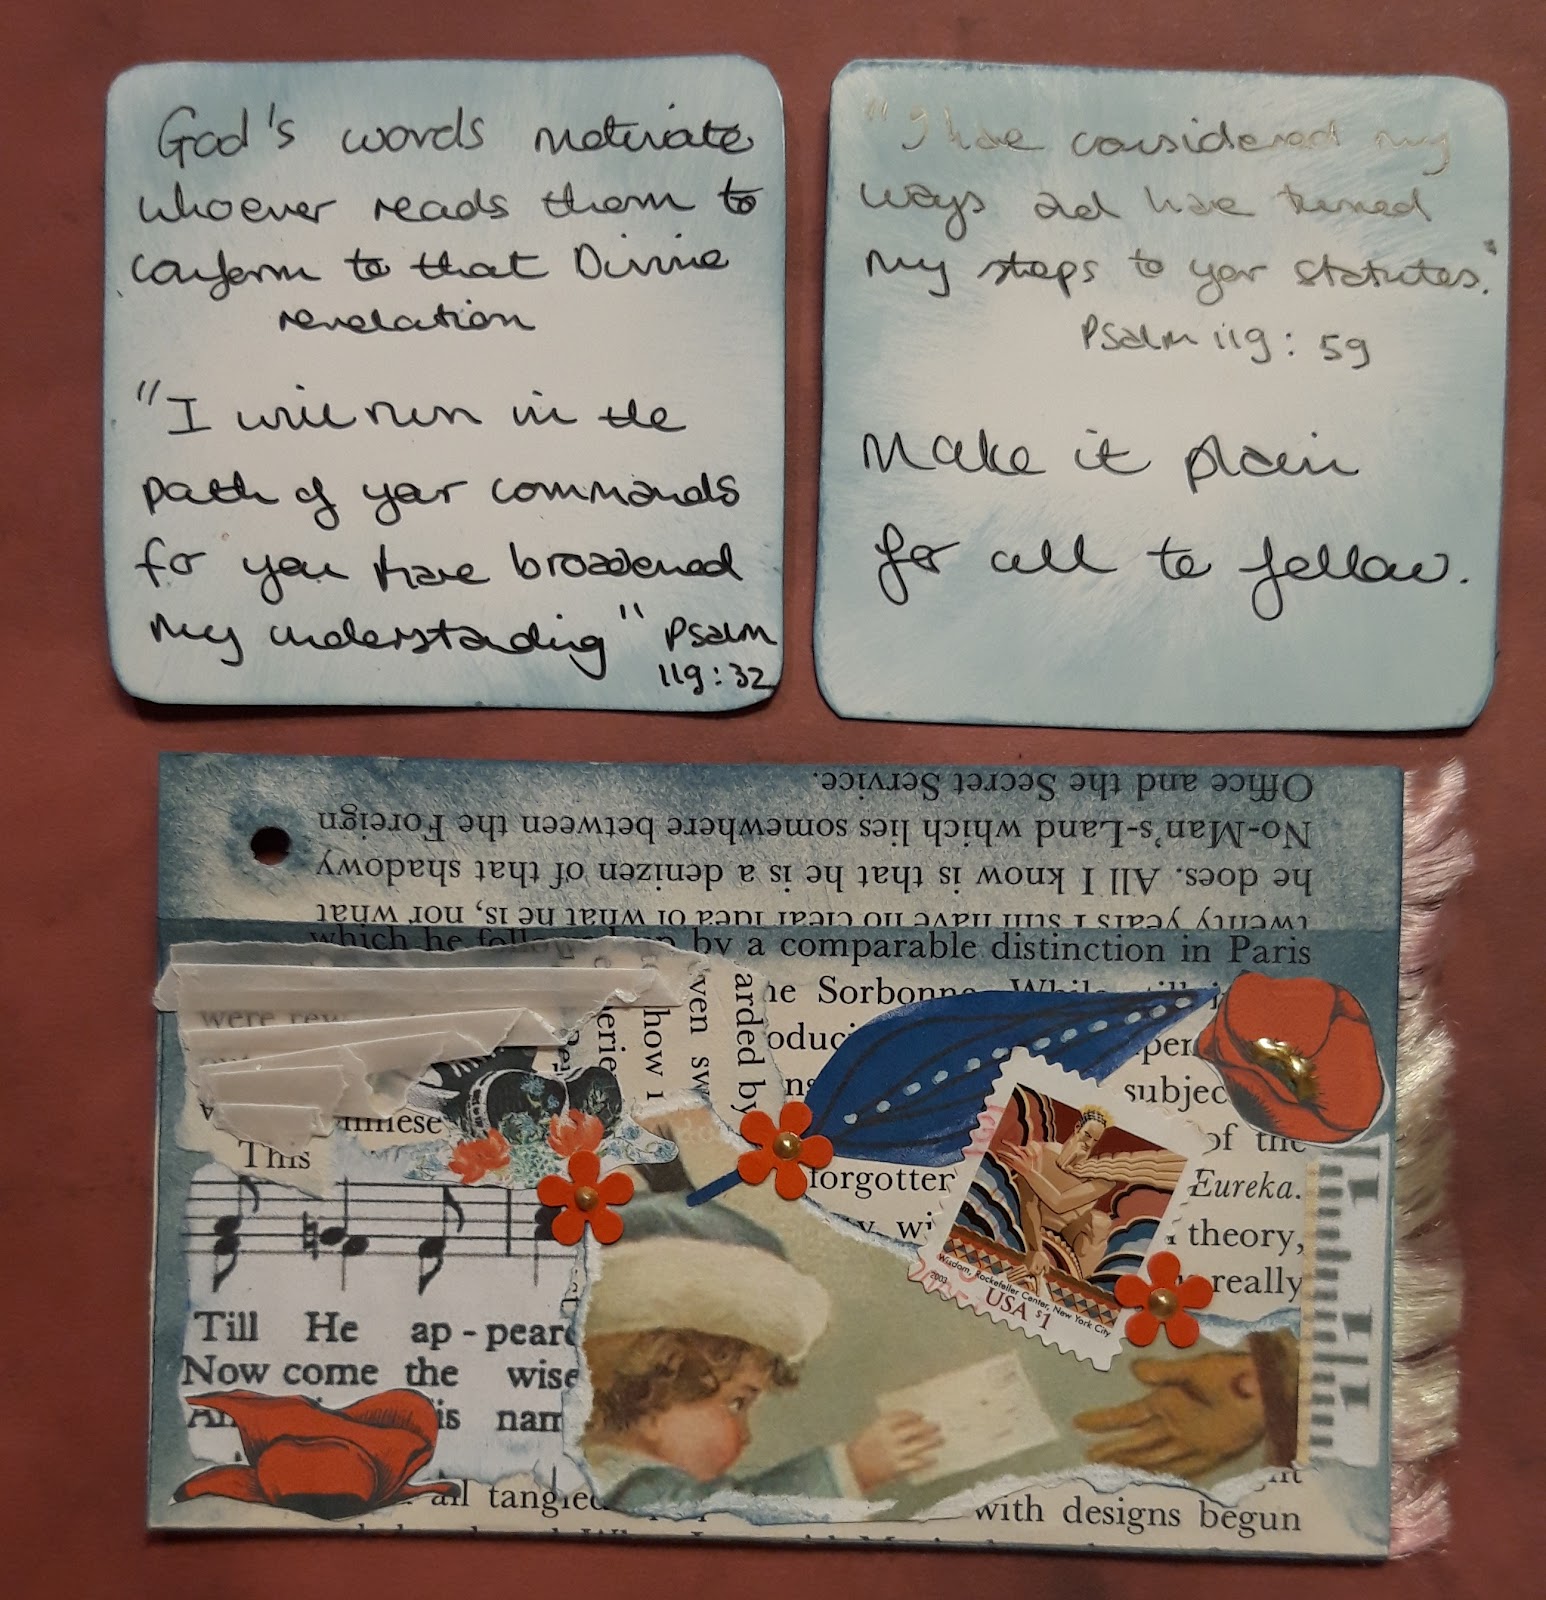 God's words motivate
whoever reads them to
conform to that Divine
revelation
"I will run in the
path of your commands
for you have broadened
my understanding" Psalm
119:32
"I have considered my
ways and have turned
my steps to your statutes."
Psalm 119:59
Make it plain
for all to follow.
Office and the Secret Service.
No-Man's-Land which lies somewhere between the Foreign
he does. All I know is that he is a denizen of that shadowy
twenty years I still have no clear idea of what he is, nor what
which he by a comparable distinction in Paris
were
This
how
ven sw
arded by
he Sorbonne. While still
subjec
of the
forgotten
Eureka.
theory,
really
Wisdom, Rockefeller Center, New York City
2003
USA $1
Till He ap-peare
Now come the wise
is nam
all tangled
with designs begun